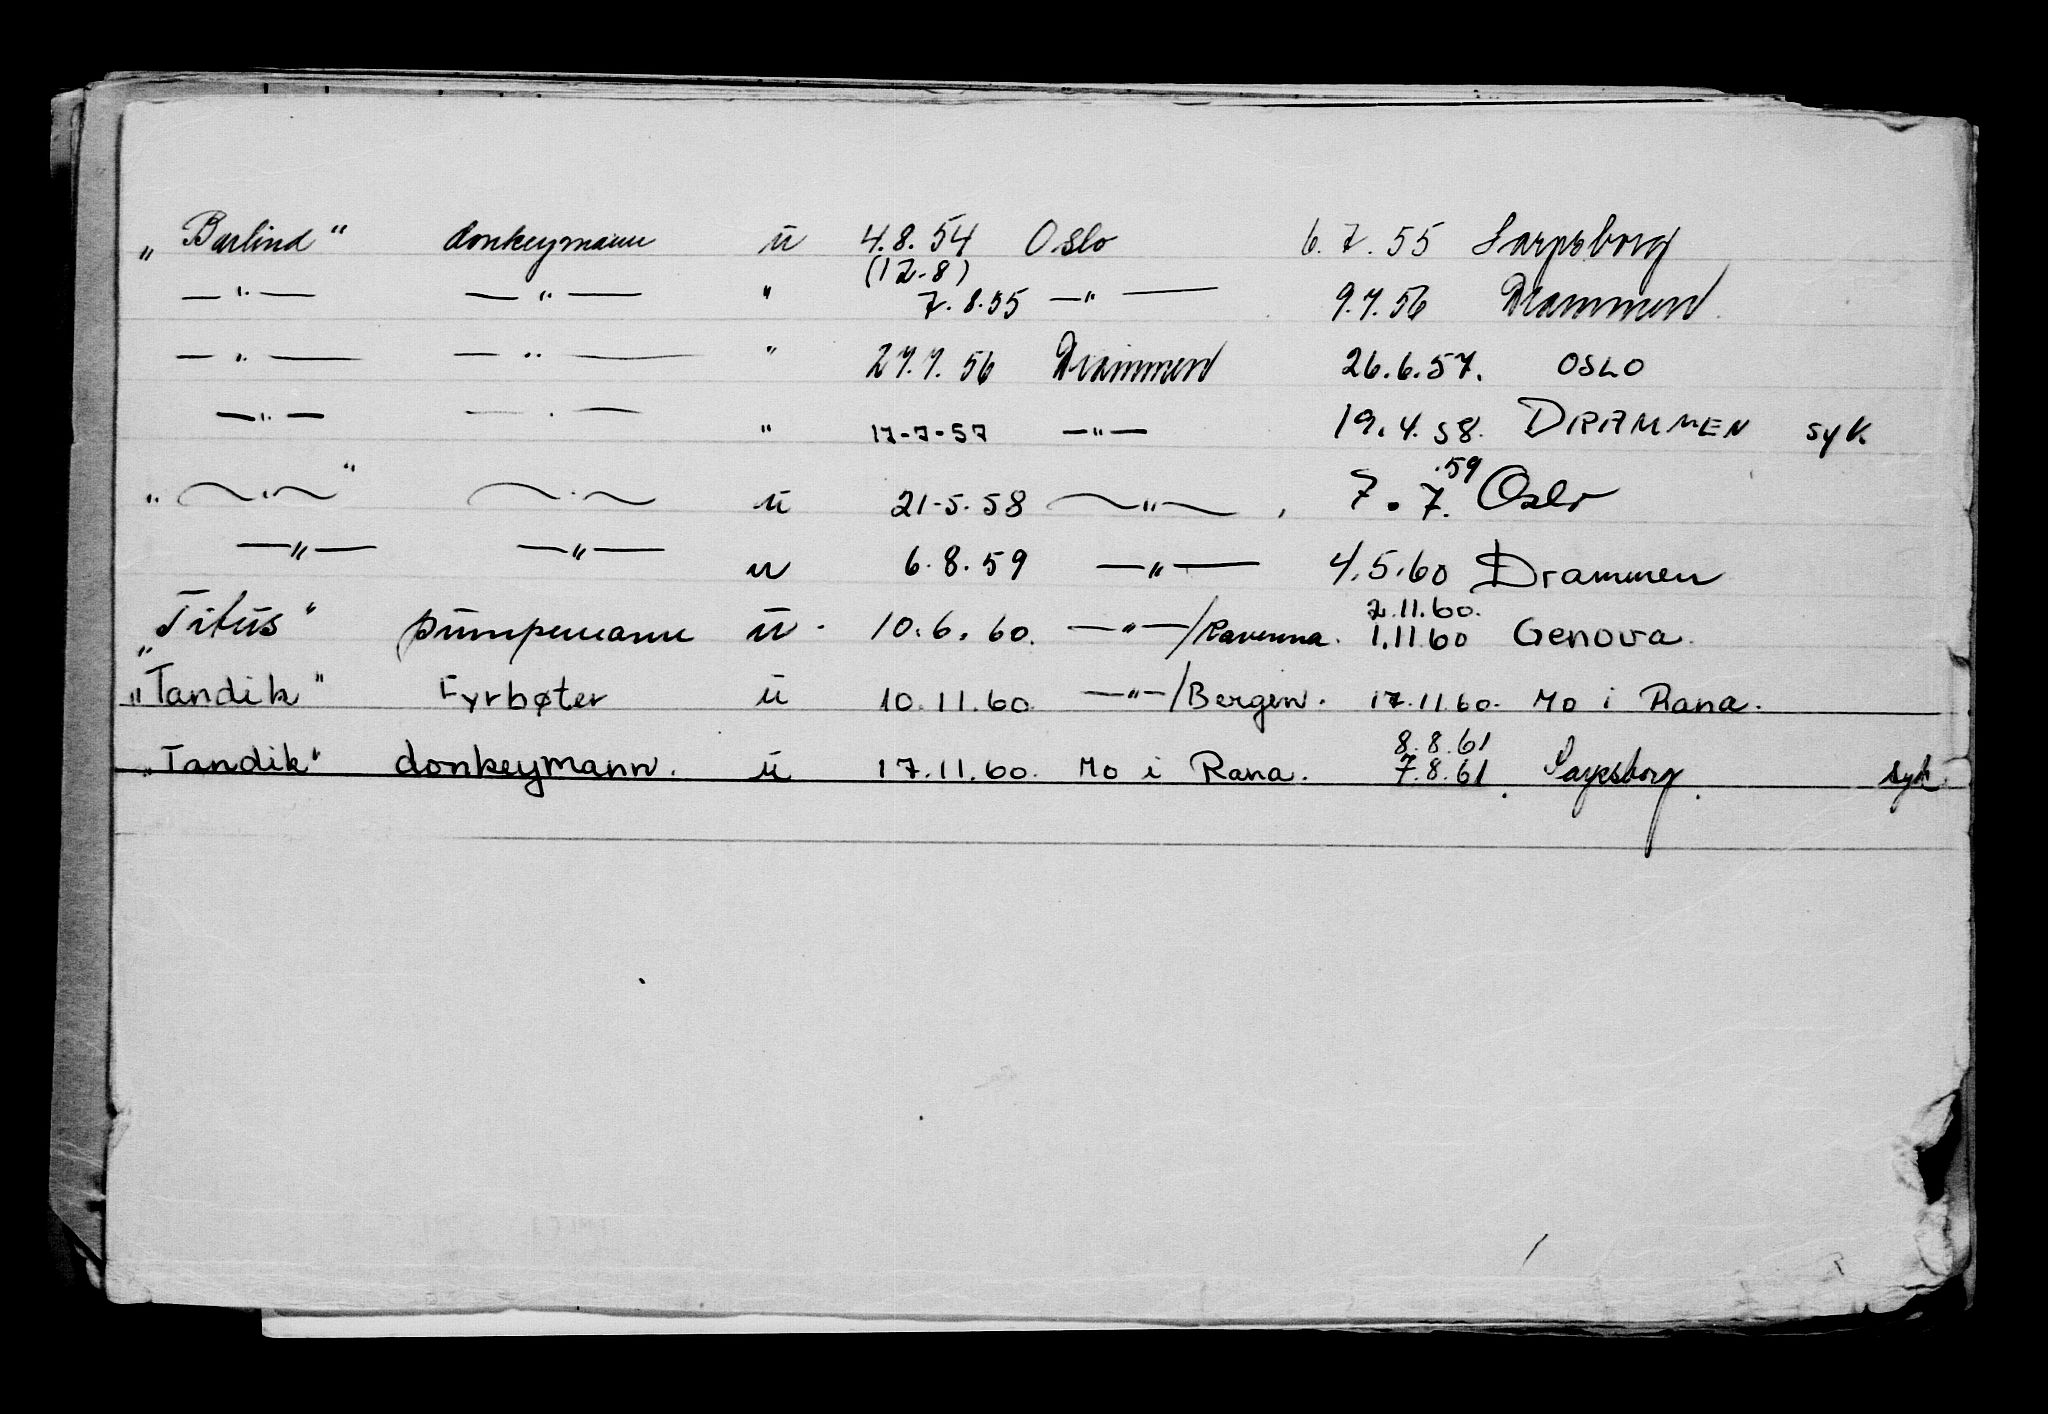 „Barlind" donkeymann u 4.8.54 Oslo 6.7.55 Sarpsborg
(12-8)
—"— —"— " 7.8.55 —"— 9.7.56 Drammen
—"— —"— " 27.7.56 Drammen 26.6.57. OSLO
—"— —"— " 17-7-57 —"— 19.4.58. DRAMMEN syk
" —"— " —"— u 21-5-58 —"— 7.7.59 Oslo
—"— —"— u 6.8.59 —"— 4.5.60 Drammen
2.11.60.
„Titus" pumpemann u. 10.6.60. —"—/Ravenna. 1.11.60 Genova.
„Tandik" Fyrbøter u 10.11.60 —"—/Bergen. 17.11.60. Mo i Rana.
8.8.61
„Tandik" donkeymann. u 17.11.60. Mo i Rana. 7.8.61. Sarpsborg. syk